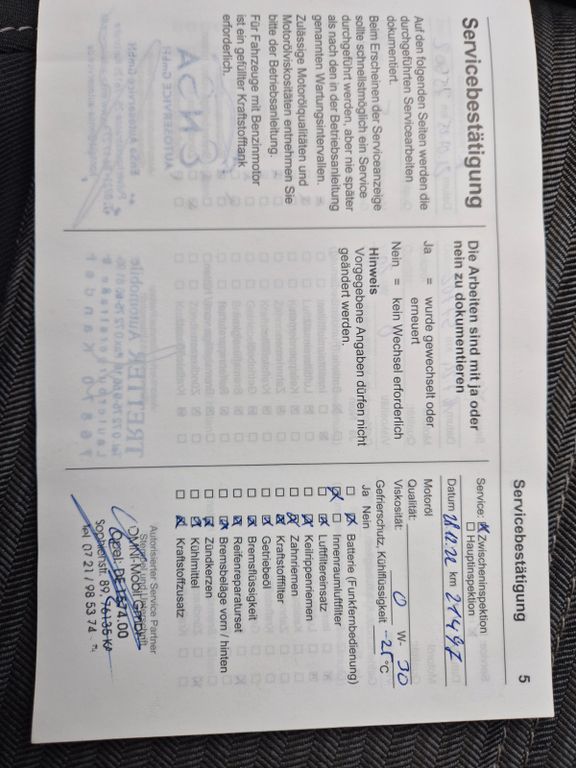 Servicebestätigung
Auf den folgenden Seiten werden die
durchgeführten Servicearbeiten
dokumentiert.
Beim Erscheinen der Serviceanzeige
sollte schnellstmöglich ein Service
durchgeführt werden, aber nie später
als nach den in der Betriebsanleitung
genannten Wartungsintervallen.
Zulässige Motorölqualitäten und
Motorölviskositäten entnehmen Sie
bitte der Betriebsanleitung.
Für Fahrzeuge mit Benzinmotor
ist ein gefüllter Kraftstofftank
erforderlich.
Die Arbeiten sind mit ja oder
nein zu dokumentieren
Ja = wurde gewechselt oder
erneuert
Nein = kein Wechsel erforderlich
Hinweis
Vorgegebene Angaben dürfen nicht
geändert werden.
Servicebestätigung 5
Service: Zwischeninspektion
Hauptinspektion
Datum km 21497
Motoröl
Qualität:
Viskosität: 0 W- 30
Gefrierschutz, Kühlflüssigkeit -25 °C
Ja Nein
Batterie (Funkfernbedienung)
Innenraumluftfilter
Luftfiltereinsatz
Keilrippenriemen
Zahnriemen
Kraftstofffilter
Getriebeöl
Bremsflüssigkeit
Reifenreparaturset
Bremsbeläge vorn / hinten
Zündkerzen
Kühlmittel
Kraftstoffzusatz
Autorisierter Service Partner
Stempel und Unterschrift
Sophienstr. 89, 76135 KA
Tel 07 21 / 98 53 74